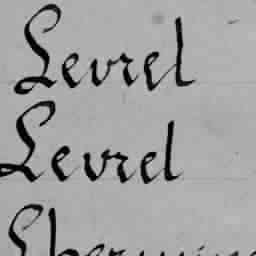 Levrel
Levrel